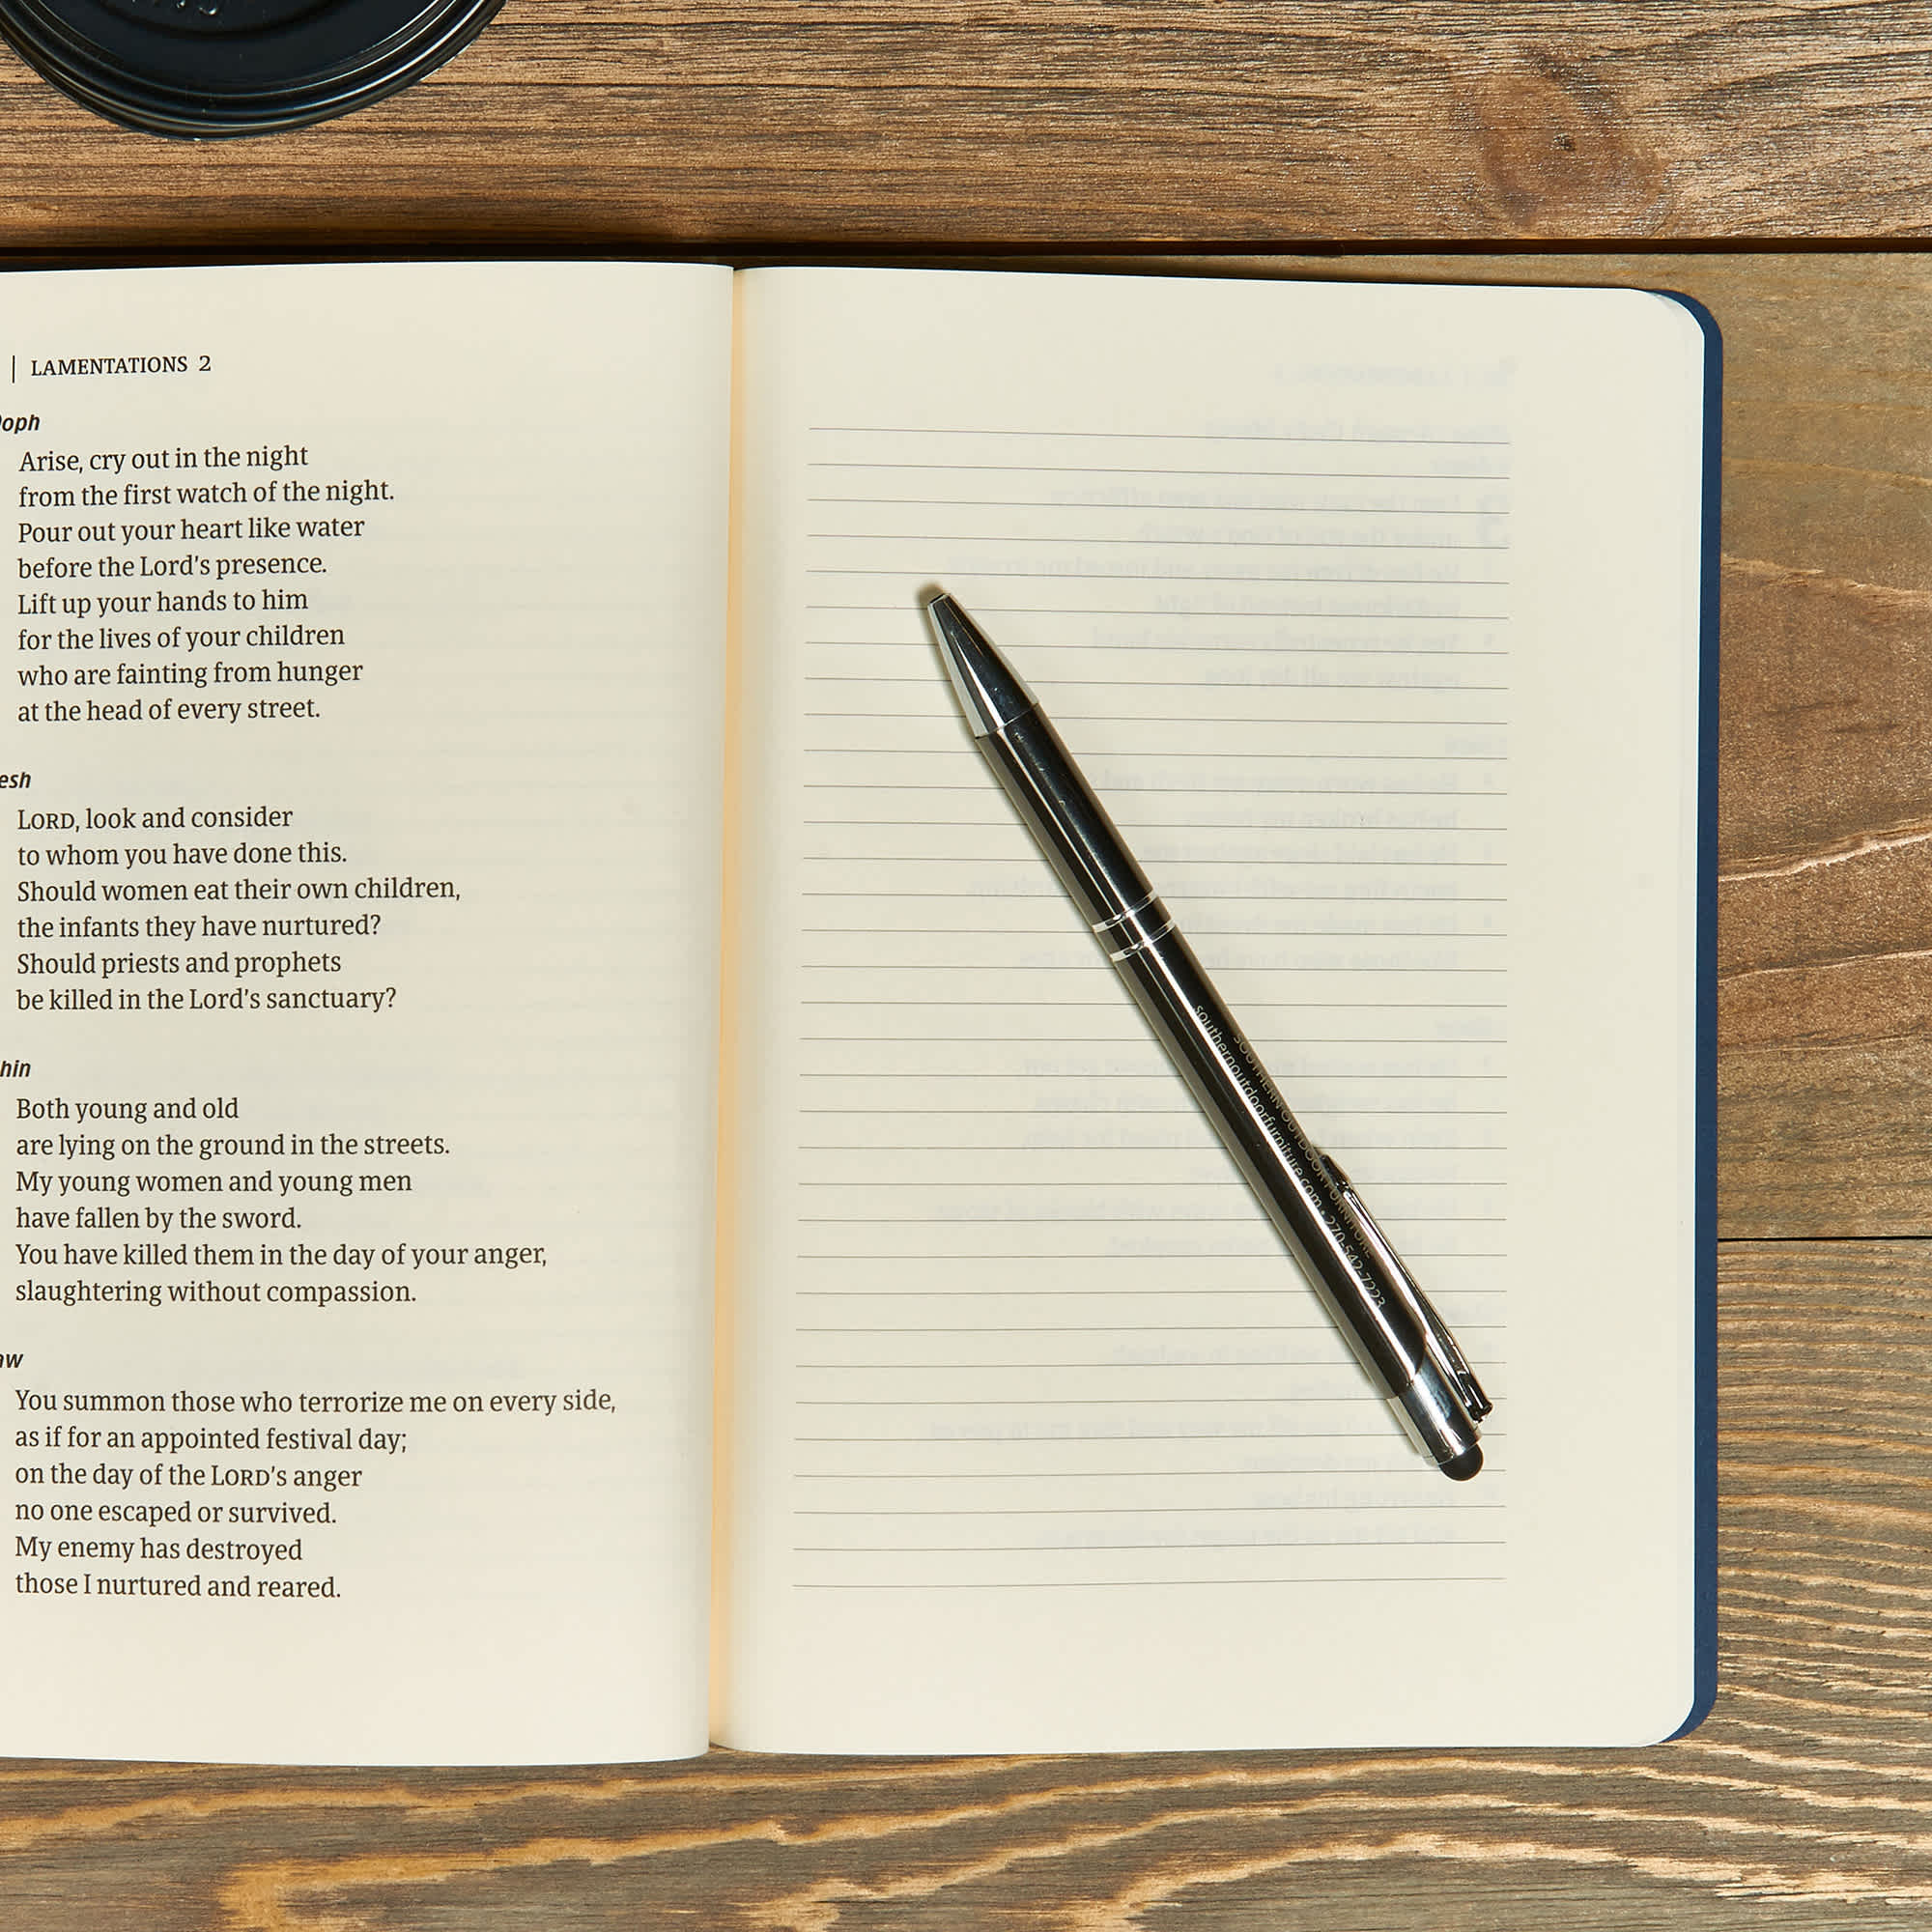 | LAMENTATIONS 2
Qoph
Arise, cry out in the night
from the first watch of the night.
Pour out your heart like water
before the Lord's presence.
Lift up your hands to him
for the lives of your children
who are fainting from hunger
at the head of every street.
esh
LORD, look and consider
to whom you have done this.
Should women eat their own children,
the infants they have nurtured?
Should priests and prophets
be killed in the Lord's sanctuary?
hin
Both young and old
are lying on the ground in the streets.
My young women and young men
have fallen by the sword.
You have killed them in the day of your anger,
slaughtering without compassion.
aw
You summon those who terrorize me on every side,
as if for an appointed festival day;
on the day of the LORD's anger
no one escaped or survived.
My enemy has destroyed
those I nurtured and reared.
SOUTHERN OUTDOOR FURNITURE
southernoutdoorfurniture.com • 270-542-7223